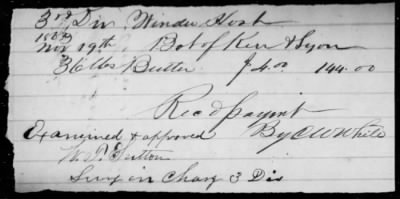 3rd Div Winder Hosp
1863
Nov 19th Bot of Ken & Lyon
36 lbs Butter $4.00 144.00
Rec'd paymt
Examined & approved By C W White
W. J. Sutton
Surg in Charg 3 Div